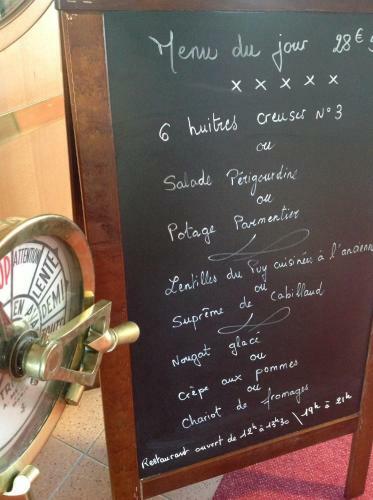 Menu du jour 28€5
x x x x x
6 huitres creuses N°3
ou
Salade Périgourdine
ou
Potage Parmentier
Lentilles du Puy cuisinées à l'ancienne
ou
Suprême de Cabillaud
Nougat glacé
ou
Crêpe aux pommes
ou
Chariot de fromages
Restaurant ouvert de 12h à 13h30 \ 19h à 21h
ATTENTION
LENTE
DEMI